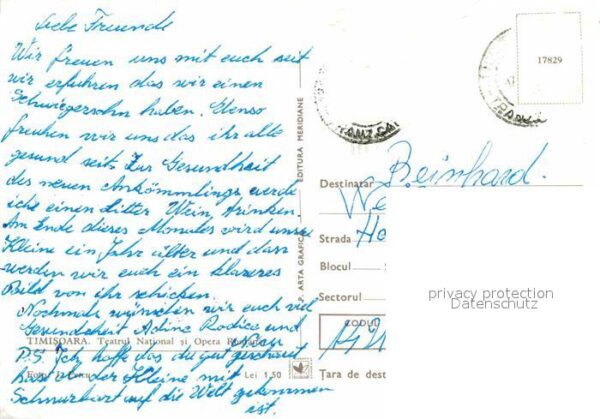 Liebe Freunde
Wir freuen uns mit euch seit
wir erfuhren das wir einen
Schwiegersohn haben. Ebenso
freuhen wir uns das ihr alle
gesund seits. Zur Gesundheit
des neuen Ankömmlings werde
iche einen Litter Wein trinken.
Am Ende dieses Monates wird unsre
Kleine ein Jahr älter und dan
werden wir euch ein klareres
Bild von ihr schicken.
Nochmals wünschen wir euch viel
Gesundeheit Adina Rodica und
TIMIŞOARA. Teatrul Naţional şi Opera
P.S. Ich hoffe das du gut geschaut
hast ob der Kleine mit
Schnurbart auf die Welt gekommen
ist.
Lei 1,50
P. ARTA GRAFICĂ
EDITURA MERIDIANE
17829
Destinatar Reinhard.
We
Strada Ho
Blocul
Sectorul
CODUL
Țara de dest
privacy protection
Datenschutz